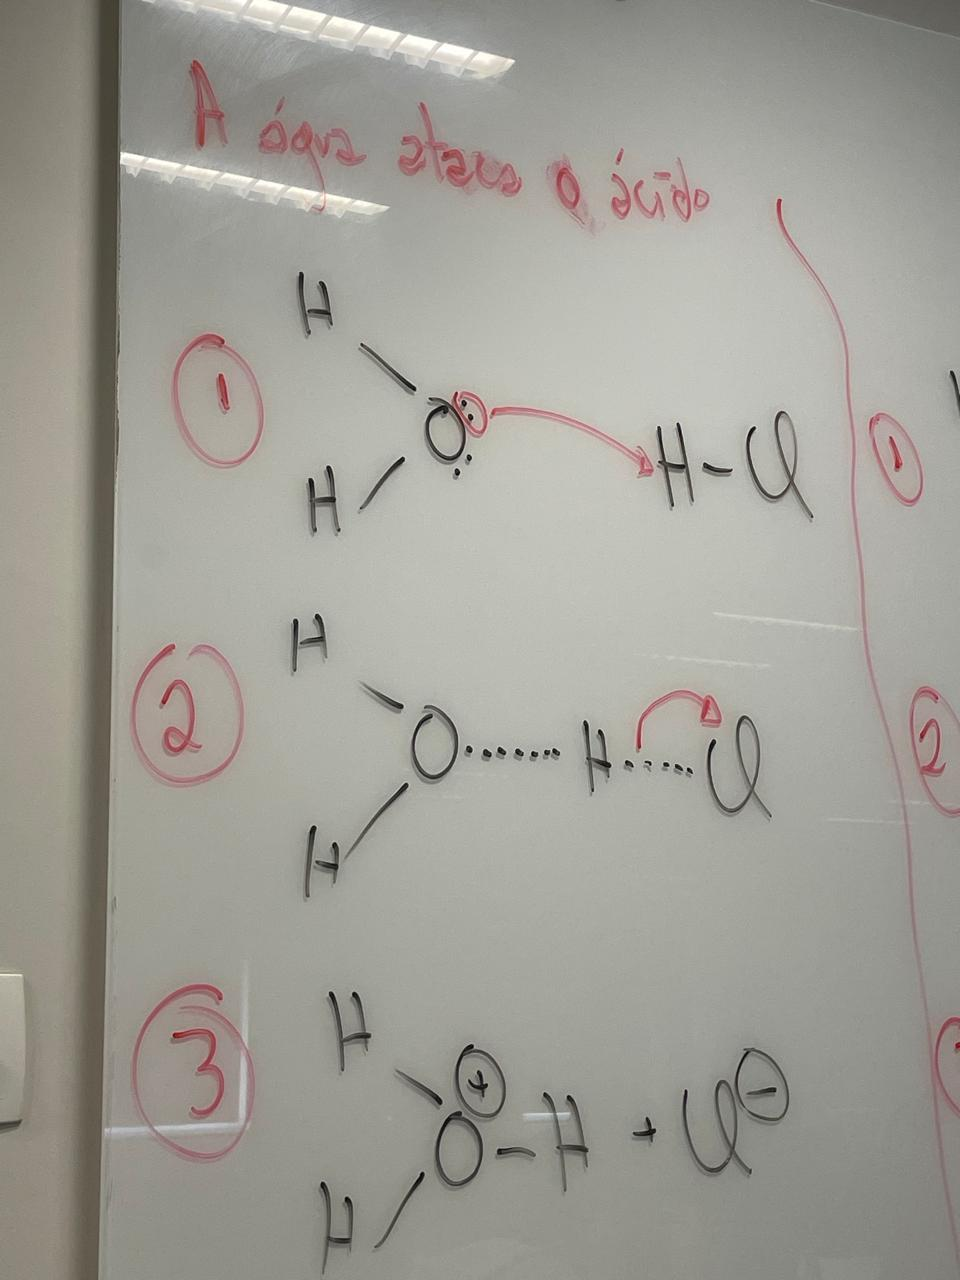 A água ataca o ácido
1
H
O
H
H - Cl
1
2
H
O ....... H ..... Cl
H
2
3
H
+
O - H + Cl -
H